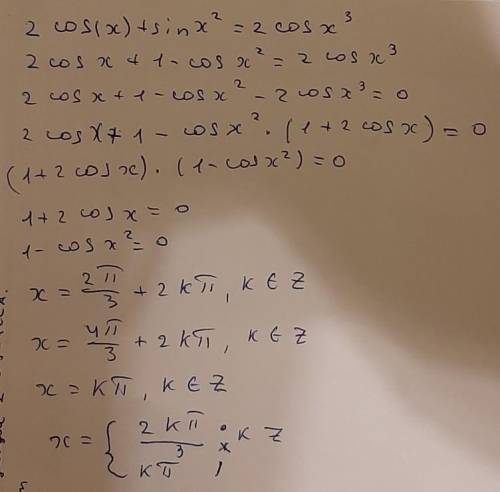 2 cos(x) + sin x² = 2 cos x³
2 cos x + 1 - cos x² = 2 cos x³
2 cos x + 1 - cos x² - 2 cos x³ = 0
2 cos x + 1 - cos x² · (1 + 2 cos x) = 0
(1 + 2 cos x) · (1 - cos x²) = 0
1 + 2 cos x = 0
1 - cos x² = 0
x = 2π/3 + 2kπ, k ∈ Z
x = 4π/3 + 2kπ, k ∈ Z
x = kπ, k ∈ Z
x = { 2kπ/3 ; k Z
kπ ,